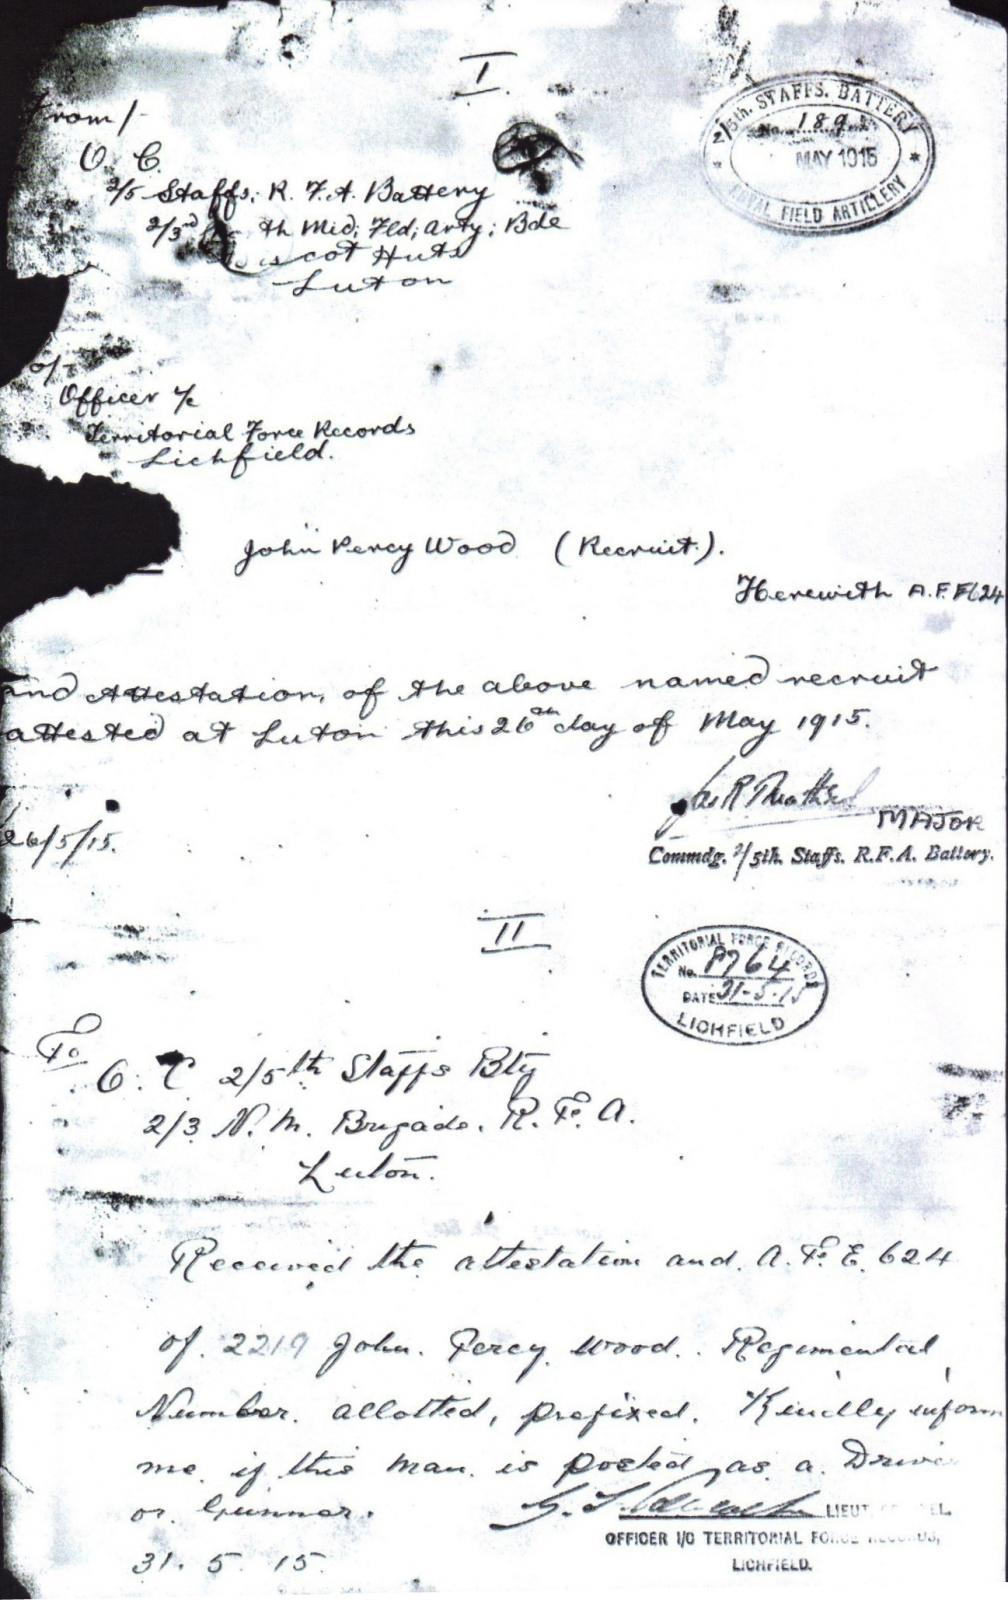 I
2/5th. STAFFS. BATTERY
No. 189
MAY 1915
ROYAL FIELD ARTILLERY
From/-
O. C.
2/5 Staffs; R. F. A. Battery
2/3rd th Mid; Fld; Arty; Bde
cot Huts
Luton
Officer i/c
Territorial Force Records
Lichfield.
John Percy Wood (Recruit).
Herewith A.F. E624
and Attestation, of the above named recruit
attested at Luton this 26th day of May 1915.
MAJOR
26/5/15.
Commdg. 2/5th. Staffs. R.F.A. Battery.
II
TERRITORIAL FORCE RECORDS
No. 8764
DATE 31-5-15
LICHFIELD
To
O. C 2/5th Staffs Bty
2/3 N. M. Brigade. R. F. A.
Luton.
Received the attestation and. A. F. E. 624
of. 2219 John. Percy. Wood. Regimental
Number. allotted, prefixed. Kindly inform
me. if this man. is posted as a. Driver
or. Gunner.
LIEUT.
OFFICER I/C TERRITORIAL FORCE RECORDS,
LICHFIELD.
31. 5. 15.